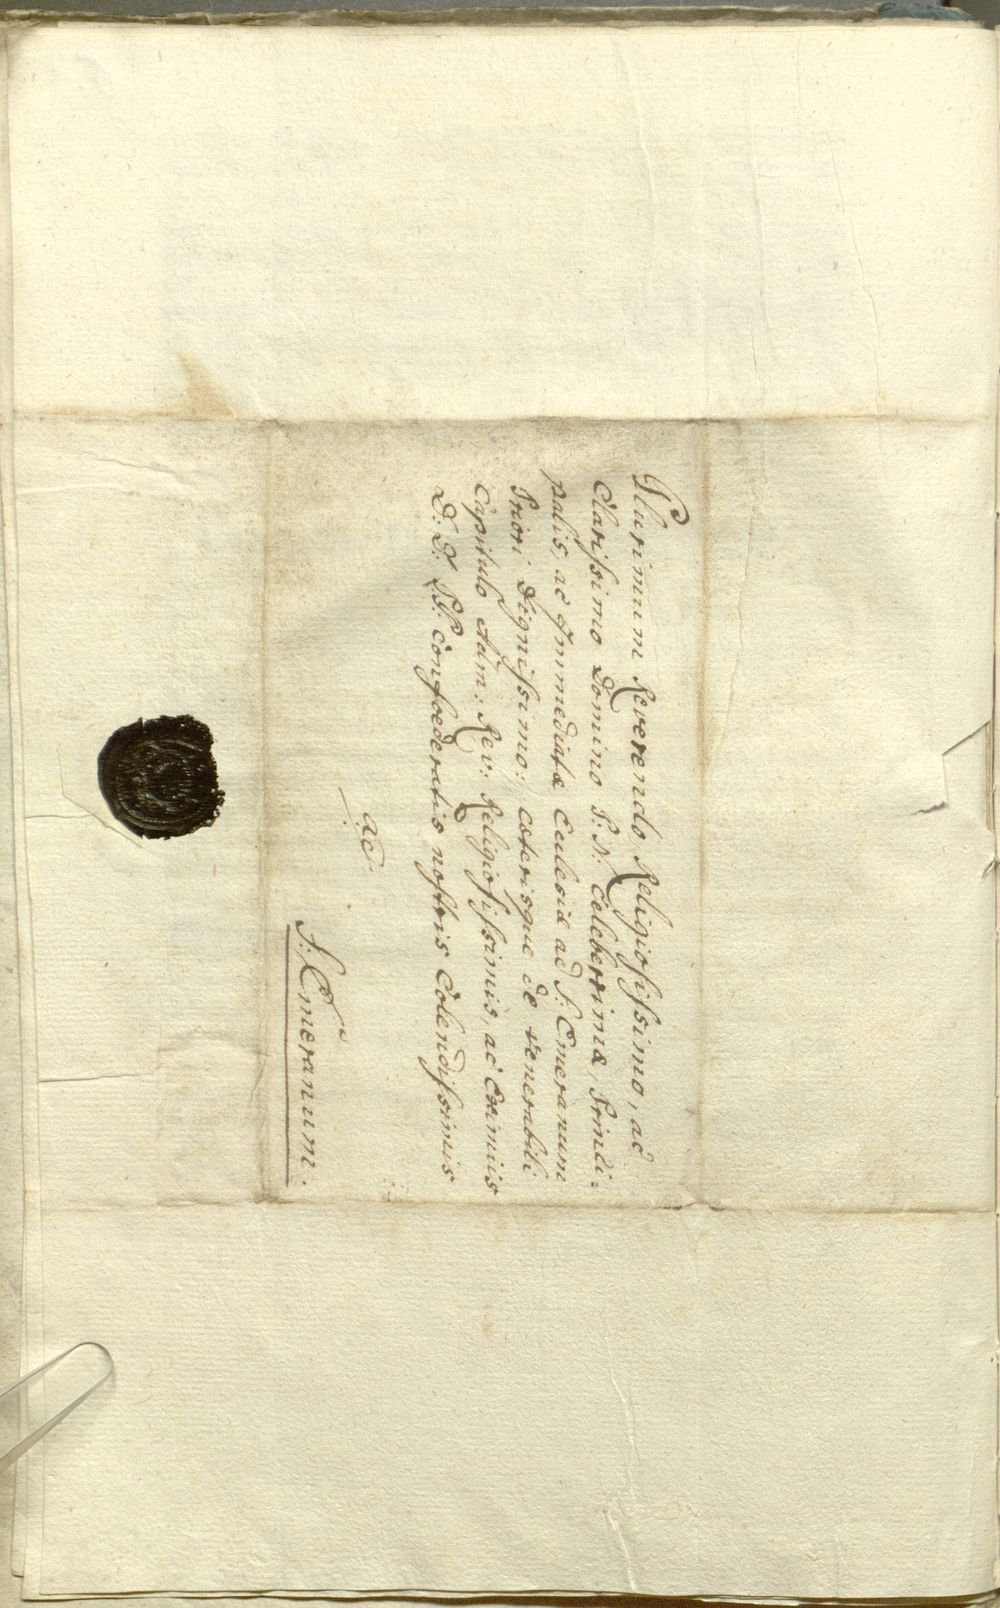 Plurimum Reverendo, Religiosissimo, ac
Clarissimo Domino P: N: Celeberrimæ, Princi-
palis, ac Immediatæ Ecclesiæ ad S: Emeranum
Priori Dignissimo: Cæterisque de venerabili
Capitulo Adm: Rev: Religiosissimis, ac Eximiis
D: D: PP: Confoederatis nostris Colendissimis
ad
S: Emeranum.